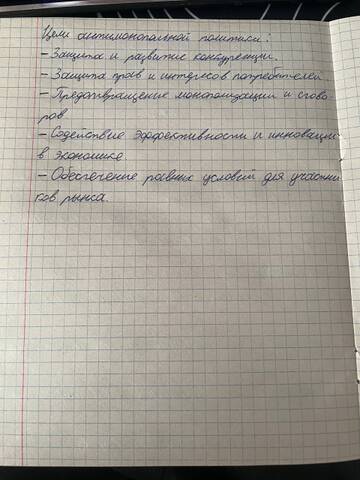 Цели антимонопольной политики:
- Защита и развитие конкуренции.
- Защита прав и интересов потребителей
- Предотвращение монополизации и сгово-
ров
- Содействие эффективности и инновации
в экономике.
- Обеспечение равных условий для участни
ков рынка.